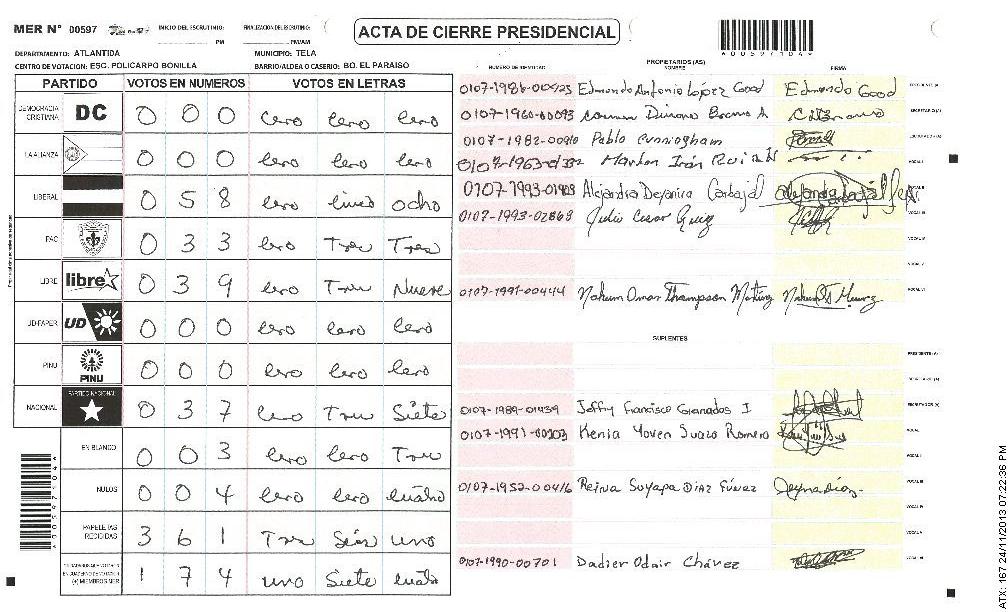 MER N° 00597 INICIO DEL ESCRUTINIO: PM FINALIZACIÓN DEL ESCRUTINIO: PM/AM
ACTA DE CIERRE PRESIDENCIAL
A00597104A
DEPARTAMENTO: ATLANTIDA MUNICIPIO: TELA
CENTRO DE VOTACION: ESC. POLICARPO BONILLA BARRIO/ALDEA O CASERIO: BO. EL PARAISO
PARTIDO VOTOS EN NUMEROS VOTOS EN LETRAS
DEMOCRACIA CRISTIANA DC 0 0 0 Cero Cero Cero
LA ALIANZA 0 0 0 Cero Cero Cero
LIBERAL 0 5 8 Cero Cinco Ocho
PAC 0 3 3 Cero Tres Tres
LIBRE libre 0 3 9 Cero Tres Nueve
UD-FAPER UD 0 0 0 Cero Cero Cero
PINU PINU 0 0 0 Cero Cero Cero
NACIONAL PARTIDO NACIONAL 0 3 7 Cero Tres Siete
EN BLANCO 0 0 3 Cero Cero Tres
NULOS 0 0 4 Cero Cero Cuatro
PAPELETAS RECIBIDAS 3 6 1 Tres Seis uno
(+) MIEMBROS MER 1 7 4 uno Siete Cuatro
A00597104A
NUMERO DE IDENTIDAD PROPIETARIOS (AS) NOMBRE FIRMA
Edmondo Antonio López Good Edmondo Good PRESIDENTE (A)
0107-1960-00093 SECRETARIO (A)
0107-1982-00910 Pablo Cunningham ESCRUTADOR (A)
Marlon Iván Ruiz VOCAL I
0107-1993-01909 Alejandra Deyanira Carbajal VOCAL II
0107-1993-02869 Julio Cesar Ruiz VOCAL III
VOCAL IV
VOCAL V
0107-1991-00444 Nahum Omar Thompson Martinez VOCAL VI
SUPLENTES
PRESIDENTE (A)
SECRETARIO (A)
0107-1989-01439 Jeffry Francisco Granados I ESCRUTADOR (A)
0107-1991-00203 Kenia Yoven Suazo Romero VOCAL
VOCAL II
0107-1952-00416 Reina Suyapa Diaz Fúnez Reyna Diaz VOCAL III
VOCAL IV
VOCAL V
0107-1990-00701 Dadier Odair Chávez VOCAL VI
ATX: 167 24/11/2013 07:22:36 PM